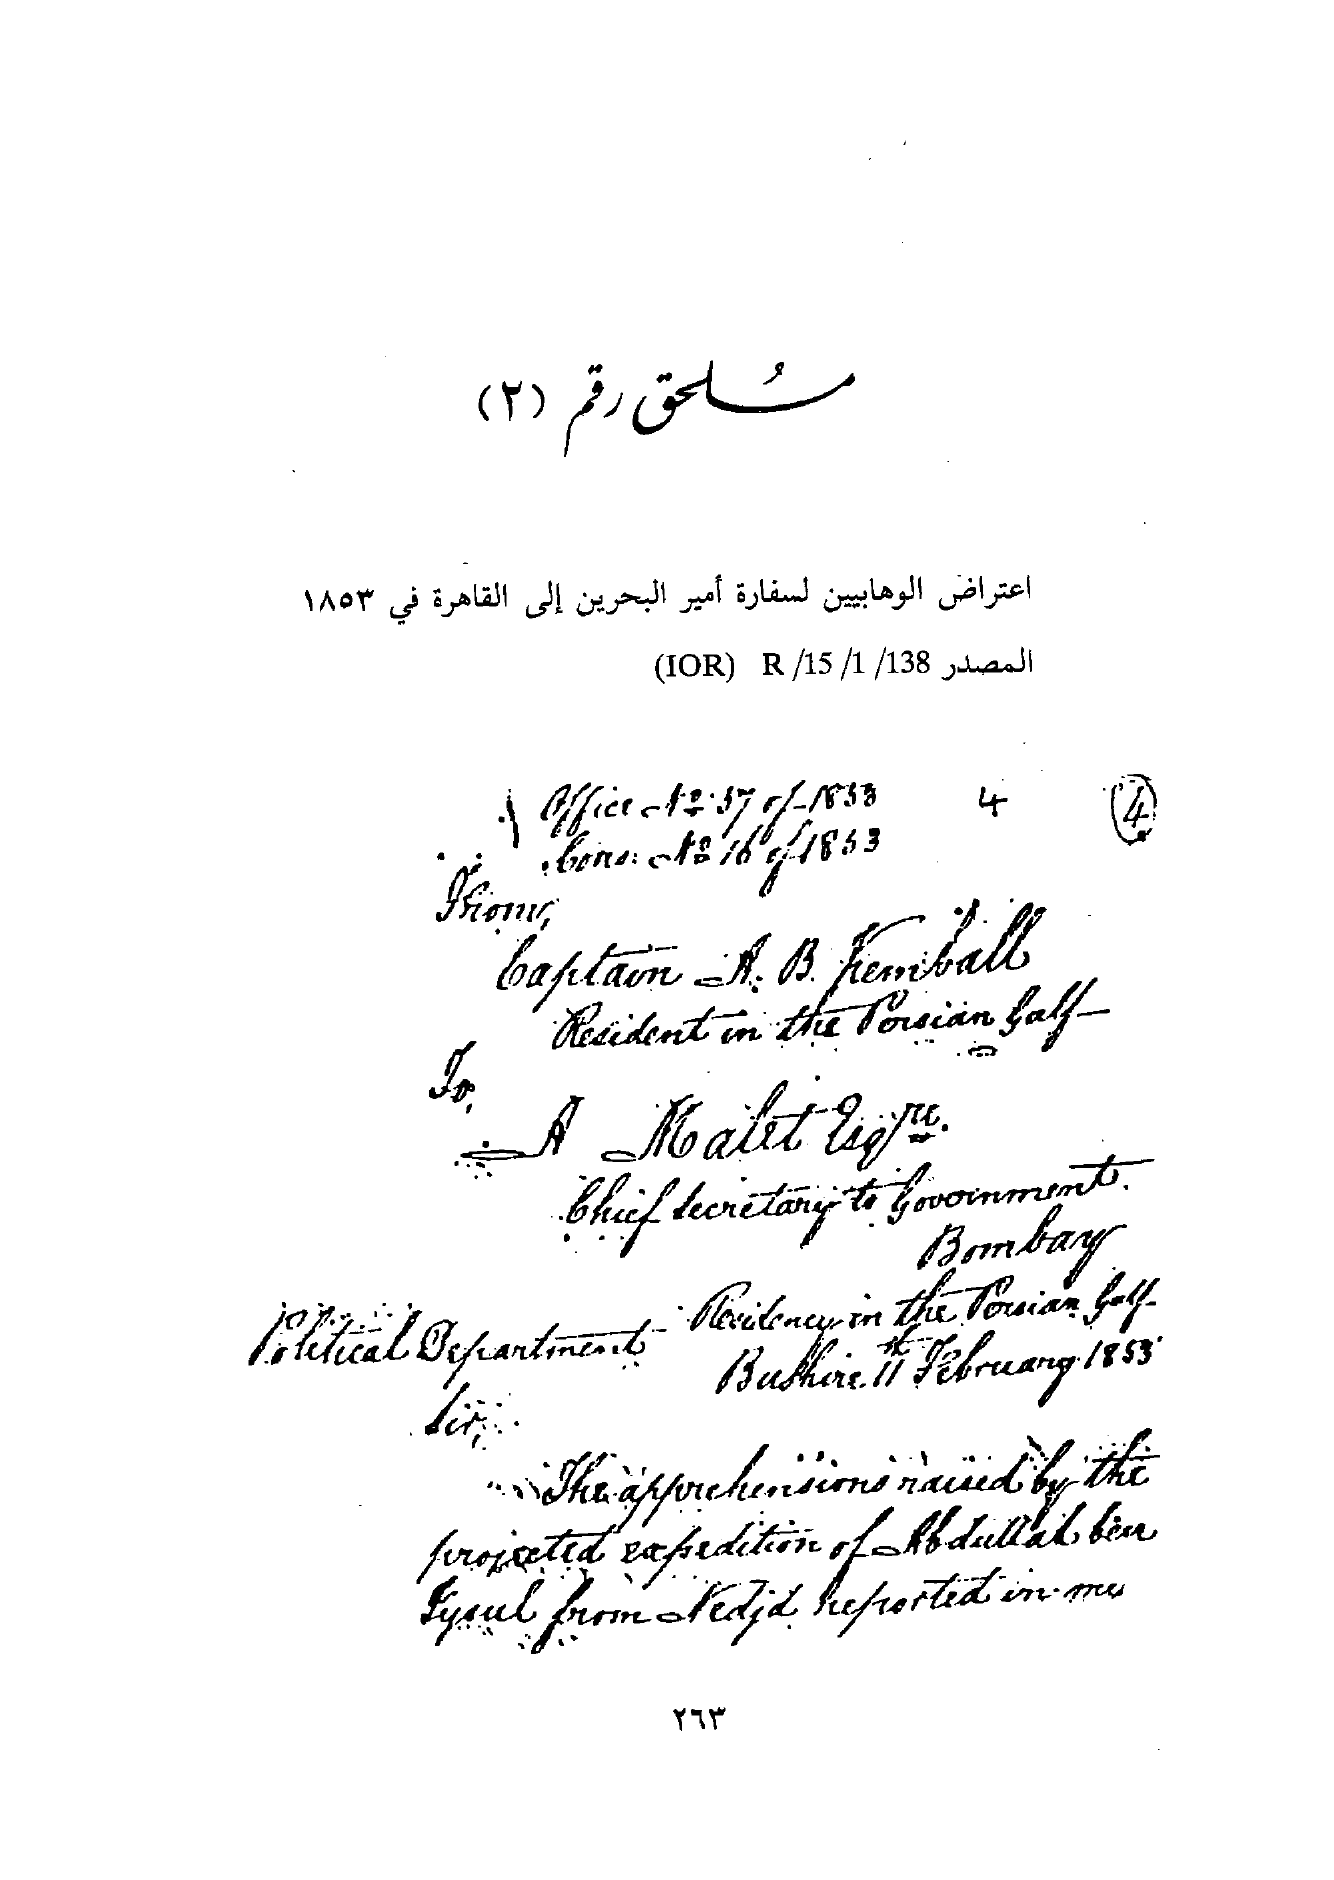 مُلحق رقم (٢)
اعتراض الوهابيين لسفارة أمير البحرين إلى القاهرة في ١٨٥٣
المصدر R /15 /1 /138 (IOR)
Office No 37 of 1853 4 4
Cons: No 16 of 1853
From,
Captain A. B. Kemball
Resident in the Persian Gulf
To,
A Malet Esqre.
Chief Secretary to Government.
Bombay
Residency in the Persian Gulf
Political Department
Bushire 11th February 1853
Sir,
The apprehensions raised by the
projected expedition of Abdullah ben
Fysul from Nedjd reported in my
٢٦٣